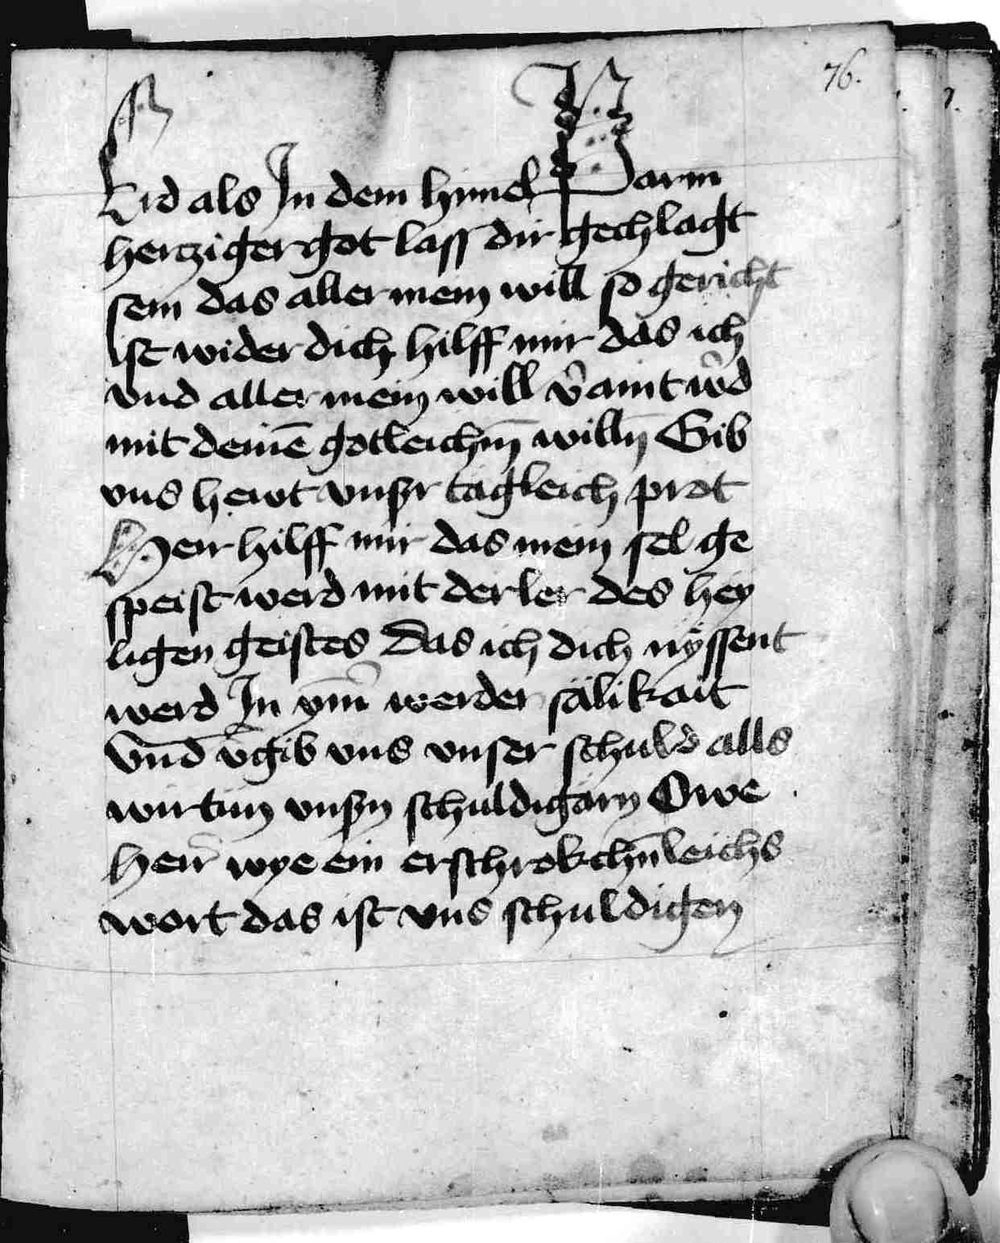 76.
Erd als In dem himel Parm
hercziger got lass dir gechlagt
sein das aller mein will so gericht
ist wider dich hilff mir das ich
vnd aller mein will v̄aint w̄d
mit deinē gotleichn̄ willn̄ Gib
vns hewt vnßr tägleich prot
Herr hilff mir das mein sel ge
speist werd mit der ler des hey
ligen geistes Das ich dich nyssent
werd In ym̄ werder sälikait
Vnd v̄gib vns vnser schuld alls
wir tun vnßn schuldigärn Owe
Herr wye ein erschrokchn̄leichs
wort das ist vns schuldigen